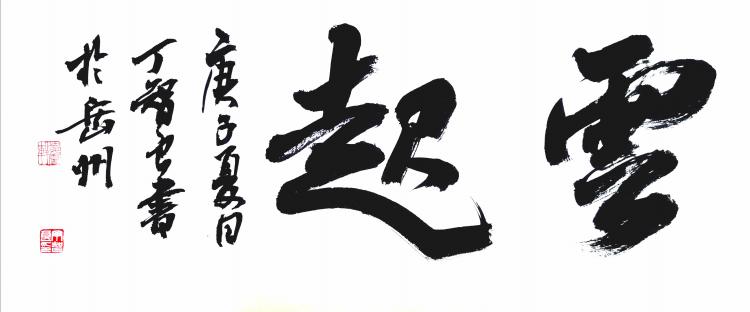 雲起
庚子夏日
丁智安書
於岳州